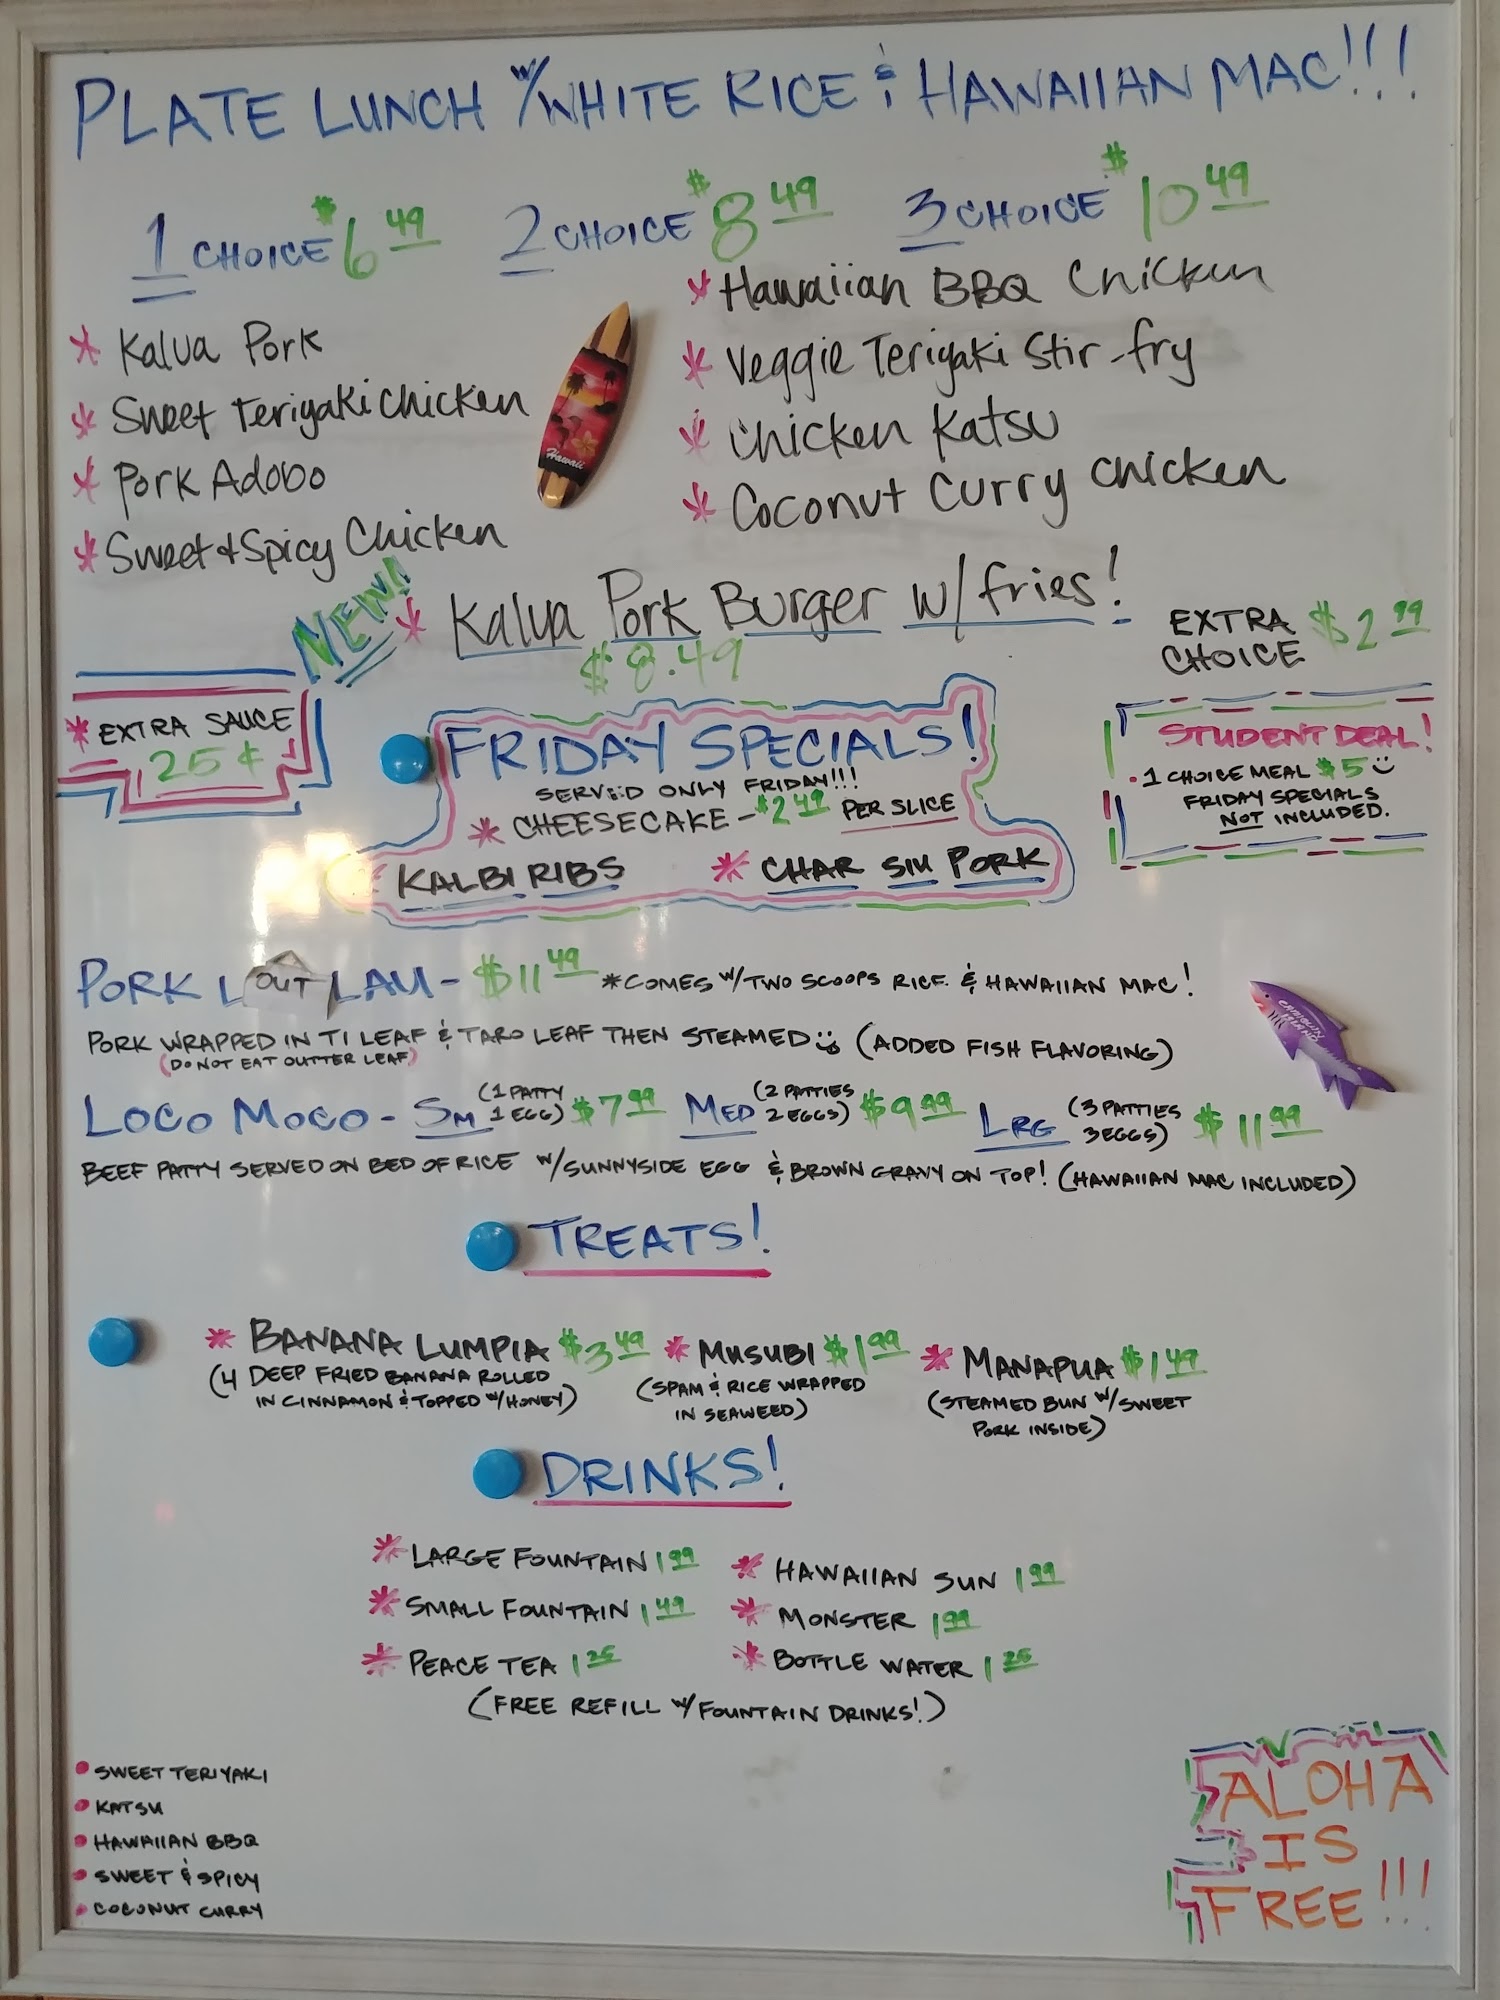 PLATE LUNCH W/WHITE RICE & HAWAIIAN MAC!!!
1 CHOICE $6.49 2 CHOICE $8.49 3 CHOICE $10.49
* Kalua Pork
* Sweet Teriyaki Chicken
* Pork Adobo
* Sweet + Spicy Chicken
* Hawaiian BBQ Chicken
* Veggie Teriyaki Stir-fry
* Chicken Katsu
* Coconut Curry Chicken
Hawaii
NEW! * Kalua Pork Burger w/fries!
$8.49
EXTRA CHOICE $2.99
* EXTRA SAUCE
25¢
FRIDAY SPECIALS!
SERVED ONLY FRIDAY!!!
* CHEESECAKE - $2.49 PER SLICE
* KALBI RIBS * CHAR SIU PORK
STUDENT DEAL!
• 1 CHOICE MEAL $5
FRIDAY SPECIALS
NOT INCLUDED.
PORK L OUT LAU - $11.49 *COMES W/TWO SCOOPS RICE & HAWAIIAN MAC!
PORK WRAPPED IN TI LEAF & TARO LEAF THEN STEAMED (ADDED FISH FLAVORING)
(DO NOT EAT OUTTER LEAF)
LOCO MOCO - SM (1 PATTY 1 EGG) $7.99 MED (2 PATTIES 2 EGGS) $9.99 LRG (3 PATTIES 3 EGGS) $11.99
BEEF PATTY SERVED ON BED OF RICE W/SUNNYSIDE EGG & BROWN GRAVY ON TOP! (HAWAIIAN MAC INCLUDED)
TREATS!
* BANANA LUMPIA $3.49
(4 DEEP FRIED BANANA ROLLED
IN CINNAMON & TOPPED W/HONEY)
* MUSUBI $1.99
(SPAM & RICE WRAPPED
IN SEAWEED)
* MANAPUA $1.49
(STEAMED BUN W/SWEET
PORK INSIDE)
DRINKS!
* LARGE FOUNTAIN 1.99
* SMALL FOUNTAIN 1.49
* PEACE TEA 1.25
* HAWAIIAN SUN 1.99
* MONSTER 1.99
* BOTTLE WATER 1.25
(FREE REFILL W/FOUNTAIN DRINKS!)
• SWEET TERIYAKI
• KATSU
• HAWAIIAN BBQ
• SWEET & SPICY
• COCONUT CURRY
ALOHA
IS
FREE!!!